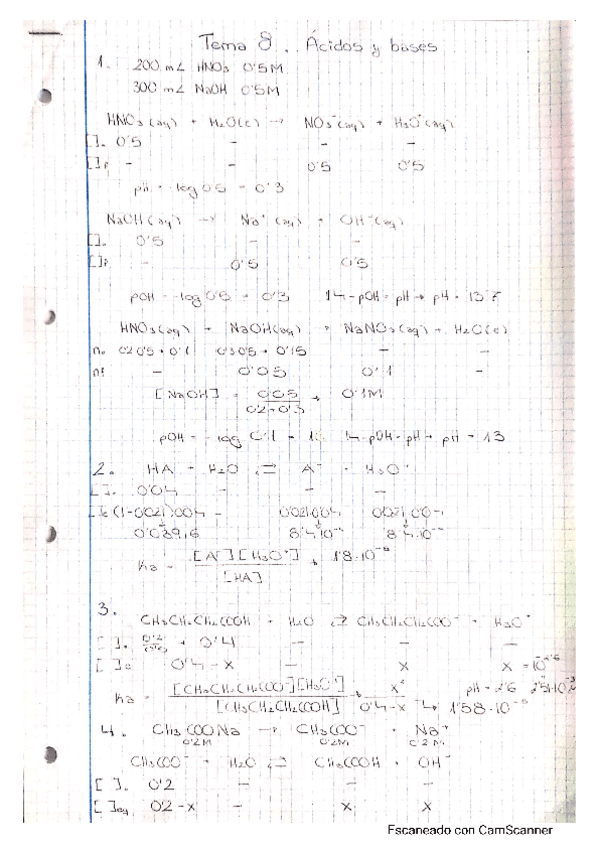 Tema 8. Ácidos y bases
1. 200 mL HNO₃ 0'5M
300 mL NaOH 0'5M
HNO₃(aq) + H₂O(l) → NO₃⁻(aq) + H₃O⁺(aq)
[ ]₀ 0'5 - - -
[ ]f - 0'5 0'5
pH = -log 0'5 = 0'3
NaOH(aq) → Na⁺(aq) + OH⁻(aq)
[ ]₀ 0'5 - -
[ ]f - 0'5 0'5
pOH = -log 0'5 = 0'3 14 - pOH = pH → pH = 13'7
HNO₃(aq) + NaOH(aq) → NaNO₃(aq) + H₂O(l)
n₀ 0'2·0'5 = 0'1 0'3·0'5 = 0'15 - -
nf - 0'05 0'1 -
[NaOH] = 0'05 / 0'2+0'3 → 0'1M
pOH = -log 0'1 = 1 14 - pOH = pH → pH = 13
2. HA + H₂O ⇄ A⁻ + H₃O⁺
[ ]₀ 0'04 - - -
(1-0'021)·0'04 - 0'021·0'04
8'4·10⁻⁴ 8'4·10⁻⁴
Ka = [A⁻][H₃O⁺] / [HA] → 1'8·10⁻⁵
3.
CH₃CH₂CH₂COOH + H₂O ⇄ CH₃CH₂CH₂COO⁻ + H₃O⁺
[ ]₀ → 0'4 - - -
[ ]e 0'4-x - x x = 10⁻²'⁶
Ka = [CH₃CH₂CH₂COO⁻][H₃O⁺] / [CH₃CH₂CH₂COOH] → x² / 0'4-x → 1'58·10⁻⁵ pH = 2'6 2'51·10⁻³
4. CH₃COONa → CH₃COO⁻ + Na⁺
0'2M 0'2M 0'2M
CH₃COO⁻ + H₂O ⇄ CH₃COOH + OH⁻
[ ]₀ 0'2 - - -
[ ]eq 0'2-x - x x
Escaneado con CamScanner